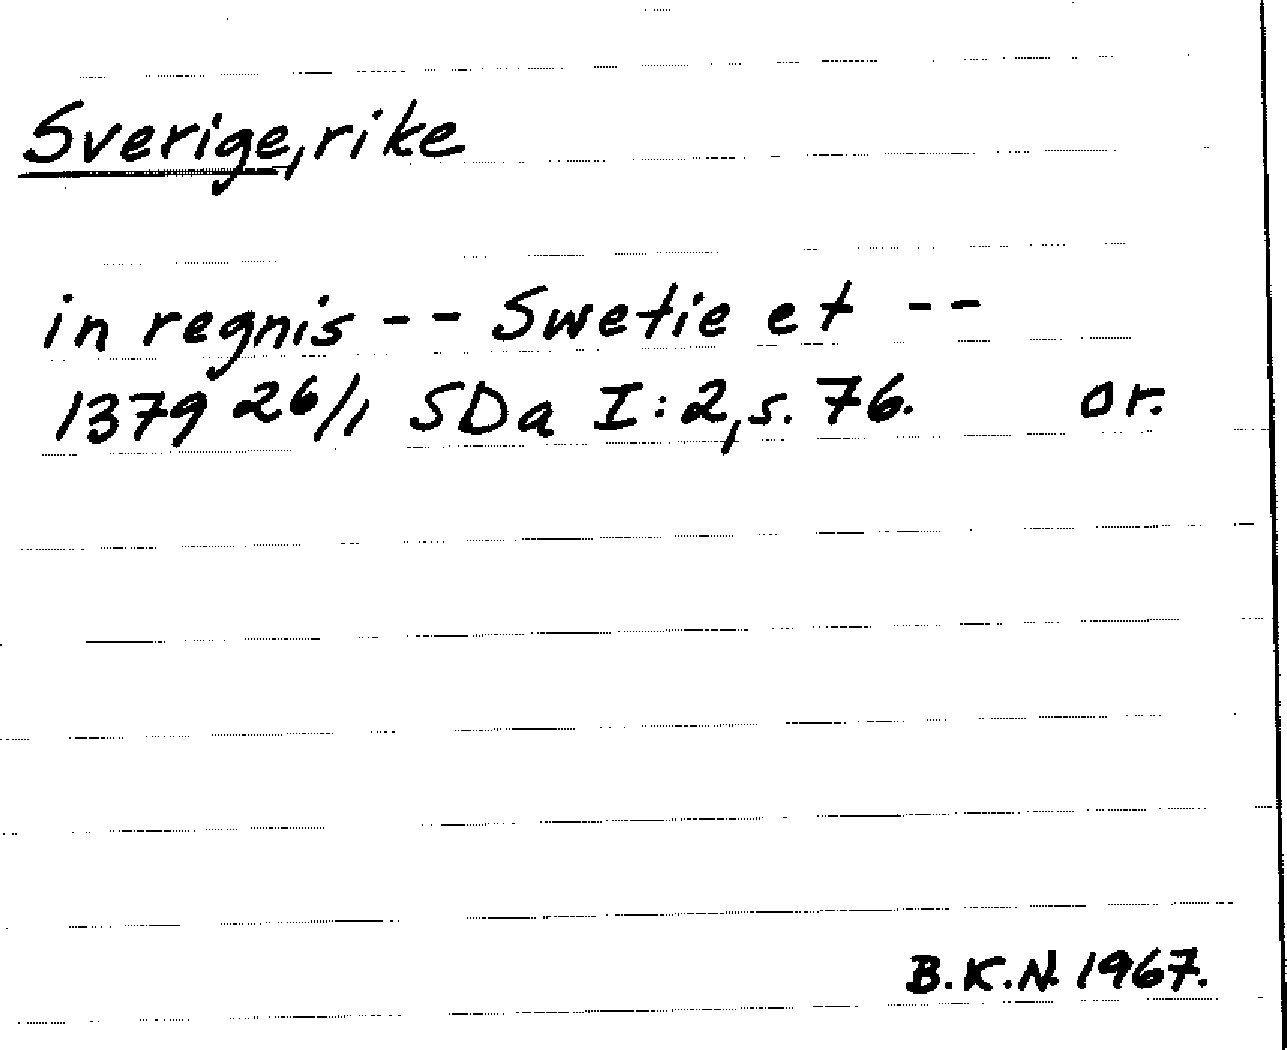 Sverige, rike
in regnis -- Swetie et --
1379 26/1 SDa I:2, s. 76. or.
B.K.N. 1967.